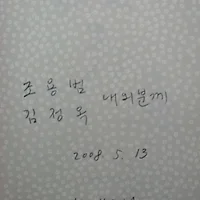 조용범
김정옥 내외분께
2008. 5. 13